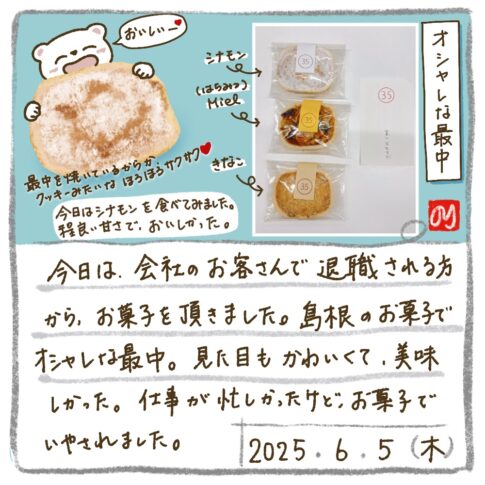 オシャレな最中
おいしいー
シナモン
(はちみつ)
Miel
きなこ
35
35
35
35
最中を焼いているからか、
クッキーみたいな ほろほろサクサク
今日はシナモンを食べてみました。
程良い甘さで、おいしかった。
今日は、会社のお客さんで退職される方
から、お菓子を頂きました。島根のお菓子で
オシャレな最中。見た目もかわいくて、美味
しかった。仕事が忙しかったけど、お菓子で
いやされました。
2025.6.5(木)